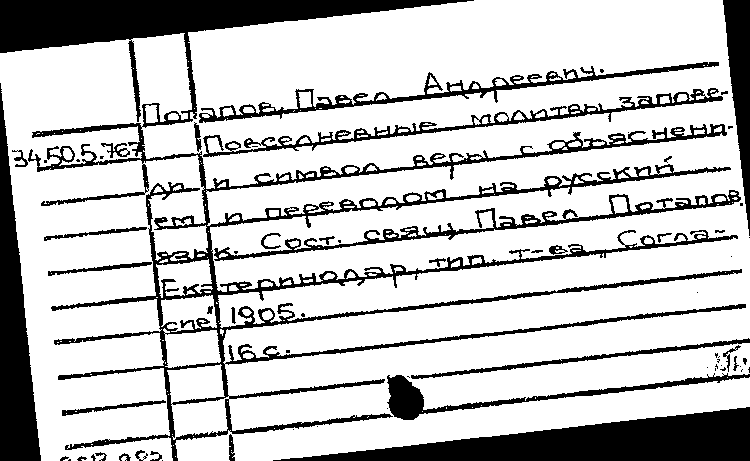 Потапов, Павел Андреевич.
34.50.5.767
Повседневные молитвы, запове-
ди и символ веры с объяснени-
ем и переводом на русский
язык. Сост. свящ. Павел Потапов.
Екатеринодар, тип. т-ва „Согла-
сие", 1905.
16 с.